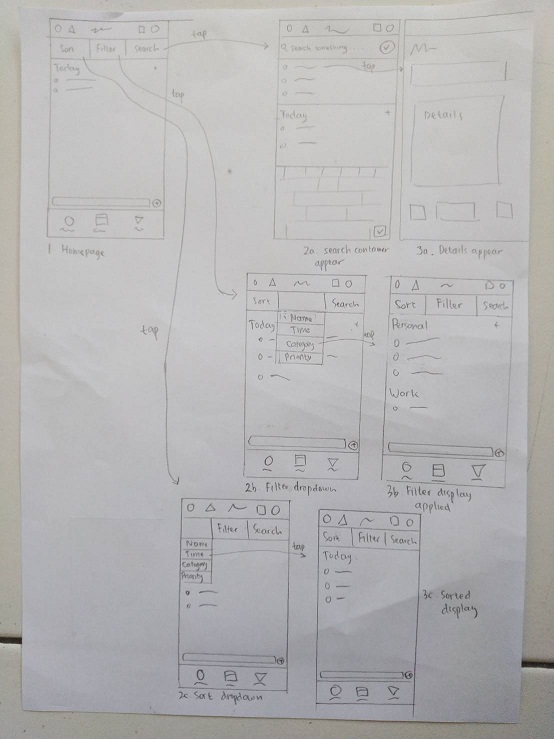 Sort Filter Search
Today +
1. Homepage
tap
tap
tap
Search something...
tap
Today +
2a. search container
appear
Details
3a. Details appear
Sort Search
Today +
Name
Time
Category
Priority
tap
2b Filter dropdown
Sort Filter Search
Personal +
Work
3b Filter display
applied
Filter Search
Name
Time
Category
Priority
tap
2c Sort dropdown
Sort Filter Search
Today
3c Sorted
display